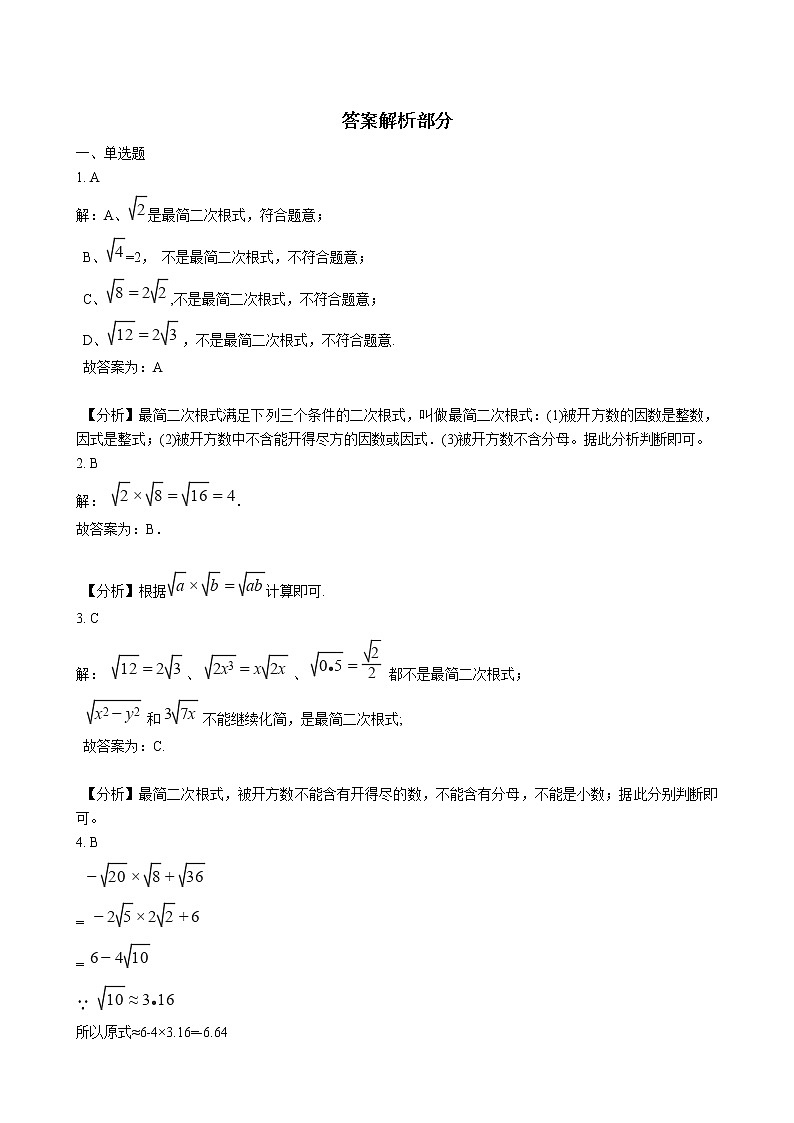 答案解析部分
一、单选题
1. A
解：A、√2是最简二次根式，符合题意；
B、√4=2， 不是最简二次根式，不符合题意；
C、√8=2√2 ,不是最简二次根式，不符合题意；
D、√12=2√3 ，不是最简二次根式，不符合题意.
故答案为：A
【分析】最简二次根式满足下列三个条件的二次根式，叫做最简二次根式：(1)被开方数的因数是整数，
因式是整式；(2)被开方数中不含能开得尽方的因数或因式．(3)被开方数不含分母。据此分析判断即可。
2. B
解： √2×√8=√16=4．
故答案为：B．
【分析】根据√a×√b=√ab计算即可.
3. C
解： √12=2√3 、√2x³=x√2x 、√0•5=√2/2 都不是最简二次根式；
√x²−y² 和 3√7x 不能继续化简，是最简二次根式;
故答案为：C.
【分析】最简二次根式，被开方数不能含有开得尽的数，不能含有分母，不能是小数；据此分别判断即
可。
4. B
−√20×√8+√36
= −2√5×2√2+6
= 6−4√10
∵ √10≈3•16
所以原式≈6-4×3.16=-6.64